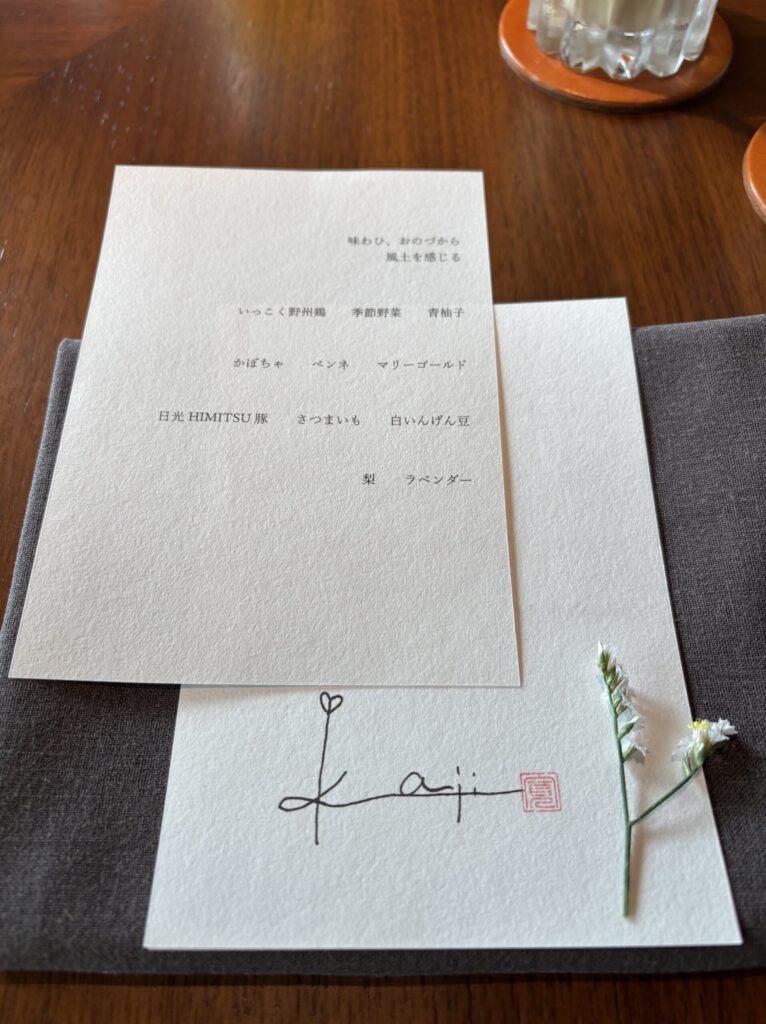 味わひ、おのづから
風土を感じる
いっこく野州鶏　季節野菜　青柚子
かぼちゃ　ペンネ　マリーゴールド
日光 HIMITSU 豚　さつまいも　白いんげん豆
梨　ラベンダー
Kaji